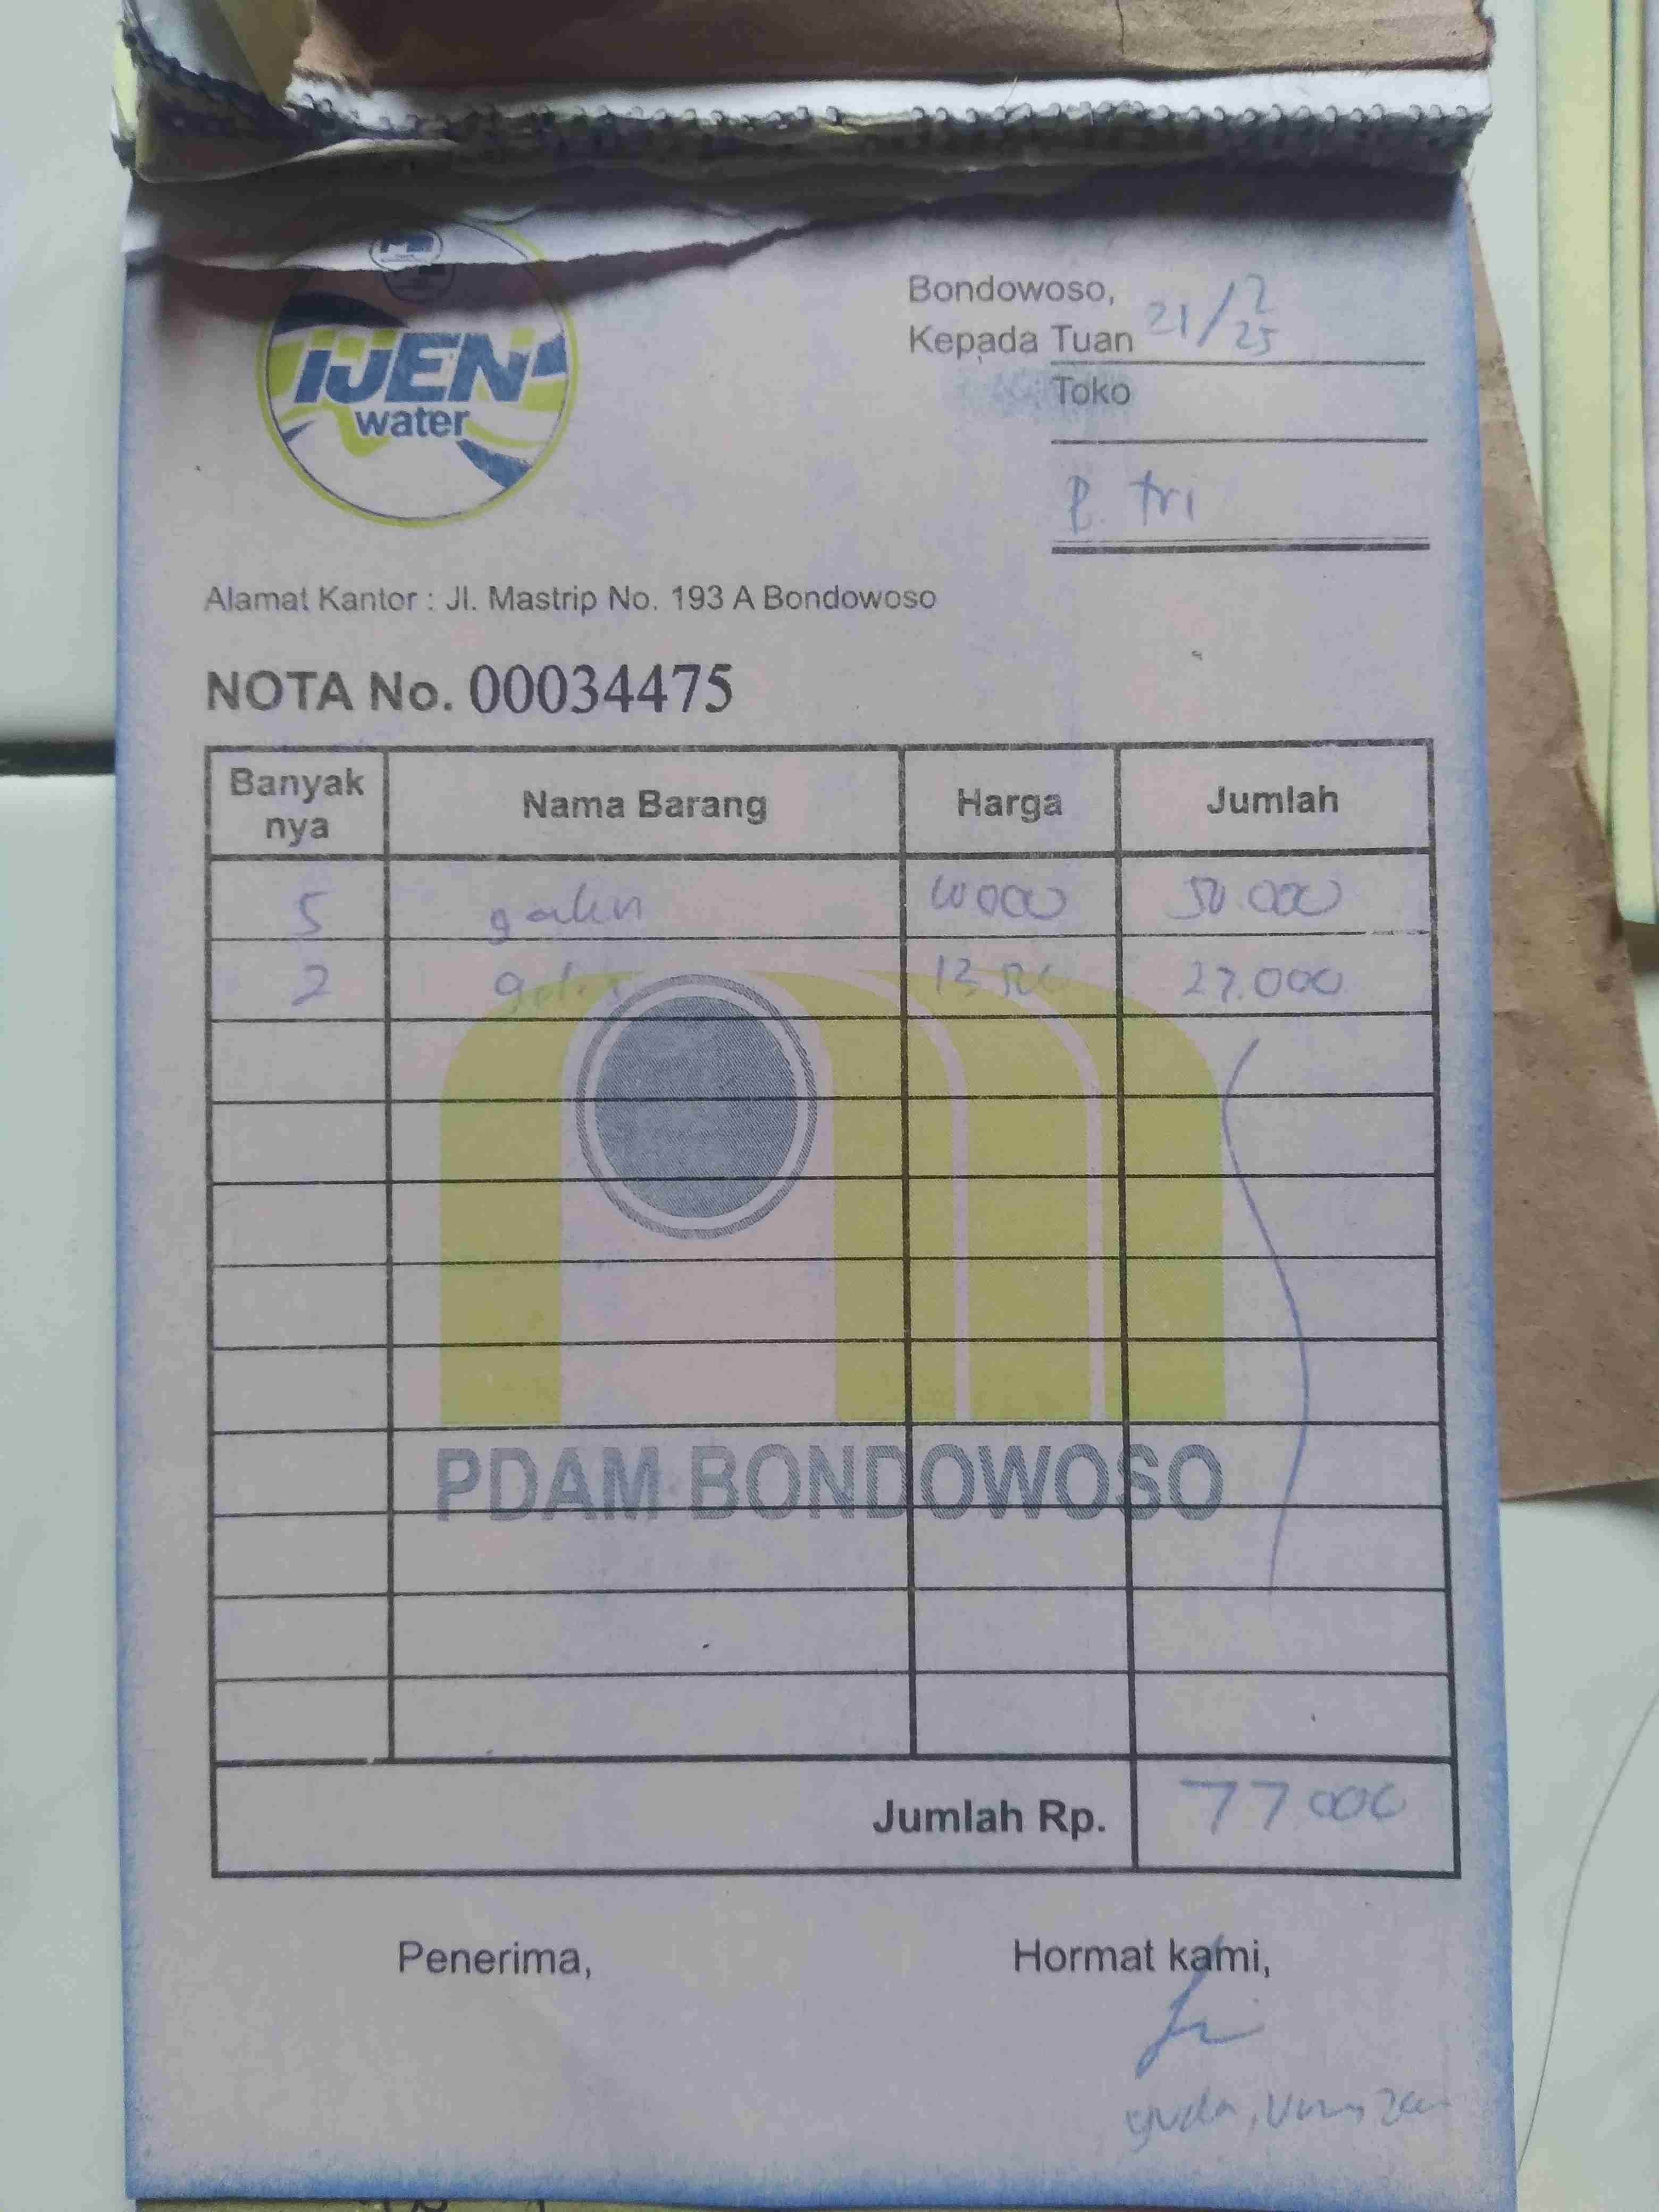 IJEN
water
Bondowoso, 21/2
25
Kepada Tuan
Toko
P. tri
Alamat Kantor : Jl. Mastrip No. 193 A Bondowoso
NOTA No. 00034475
Banyak nya Nama Barang Harga Jumlah
5 galon 10000 50.000
2 galon 13500 27.000
PDAM BONDOWOSO
Jumlah Rp. 77000
Penerima, Hormat kami,
yuda,